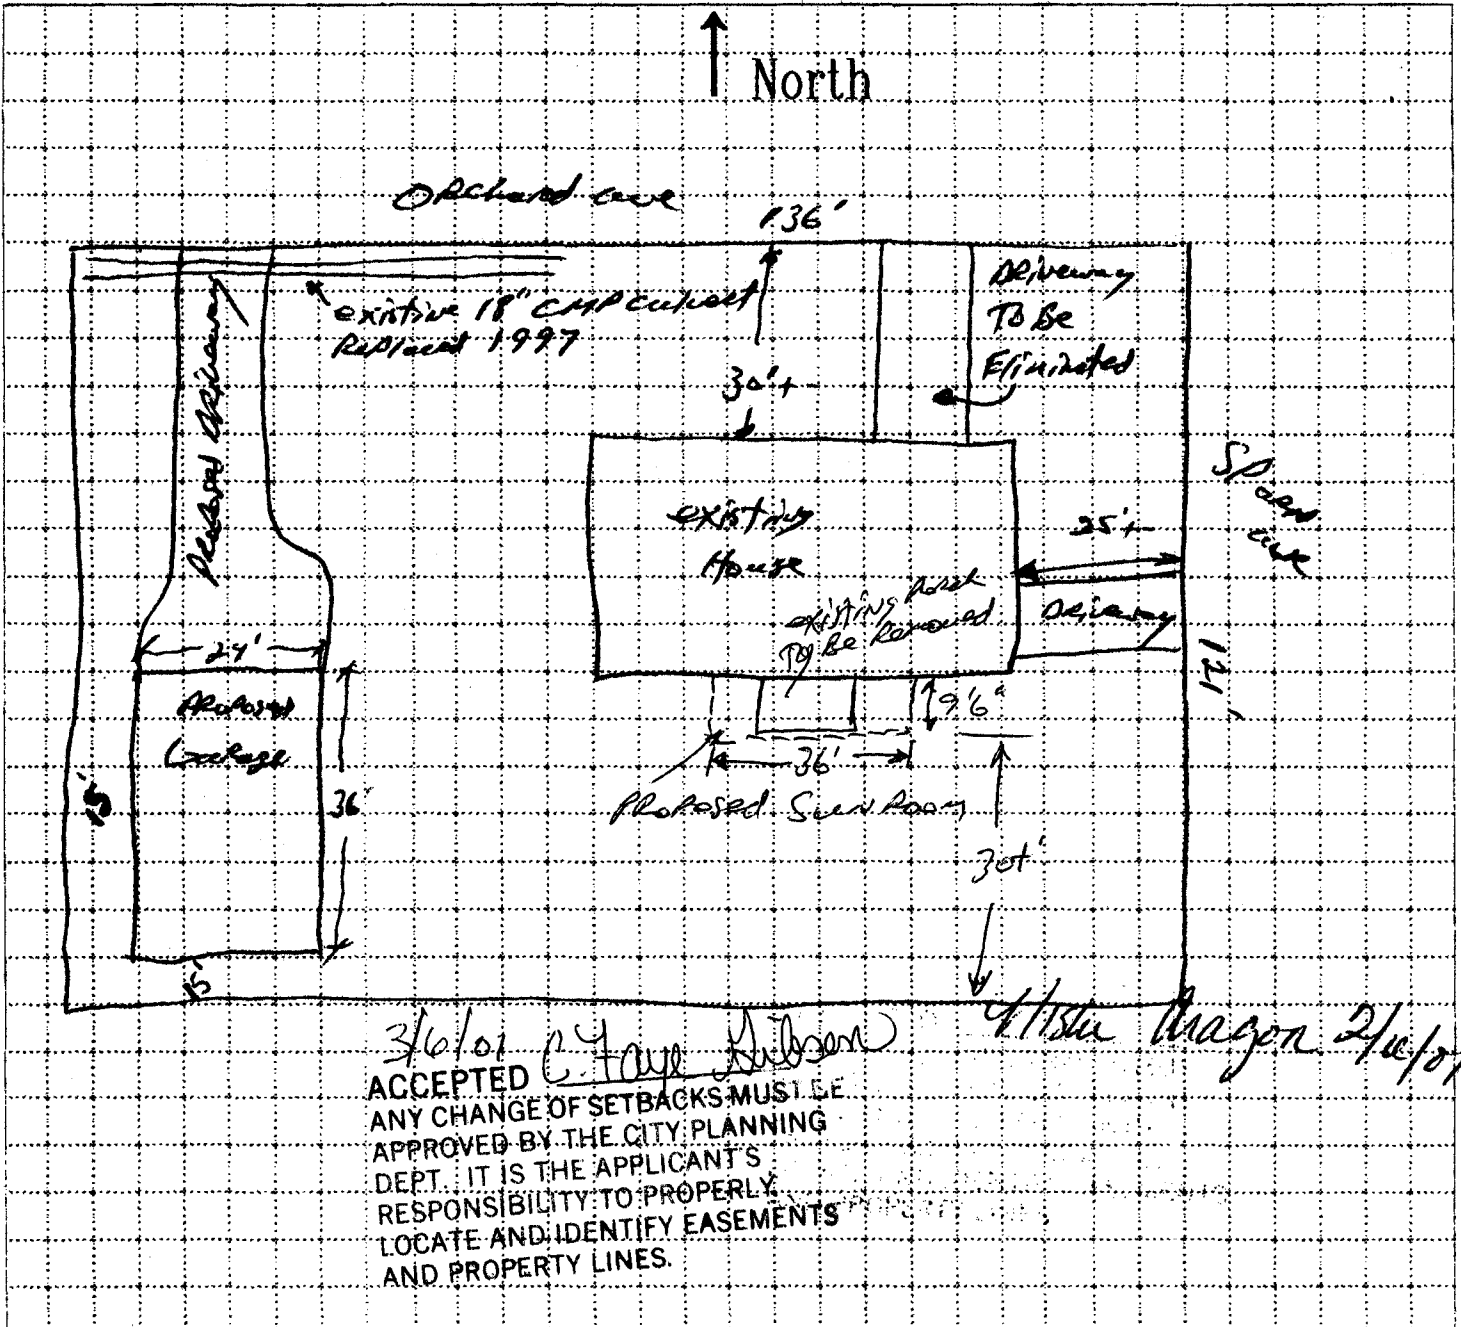 North
Orchard ave
136'
Driveway
To Be
Eliminated
existing 18" CMP Culvert
Replaced 1997
Proposed Driveway
30'+-
existing
House
25'+-
ave
existing Porch
To Be Removed
Driveway
121'
24'
Proposed
Garage
36'
15'
15'
9'6"
36'
Proposed Sun Room
30+'
3/6/01
ACCEPTED C. Faye Gibson
ANY CHANGE OF SETBACKS MUST BE
APPROVED BY THE CITY PLANNING
DEPT. IT IS THE APPLICANT'S
RESPONSIBILITY TO PROPERLY
LOCATE AND IDENTIFY EASEMENTS
AND PROPERTY LINES.
Magon